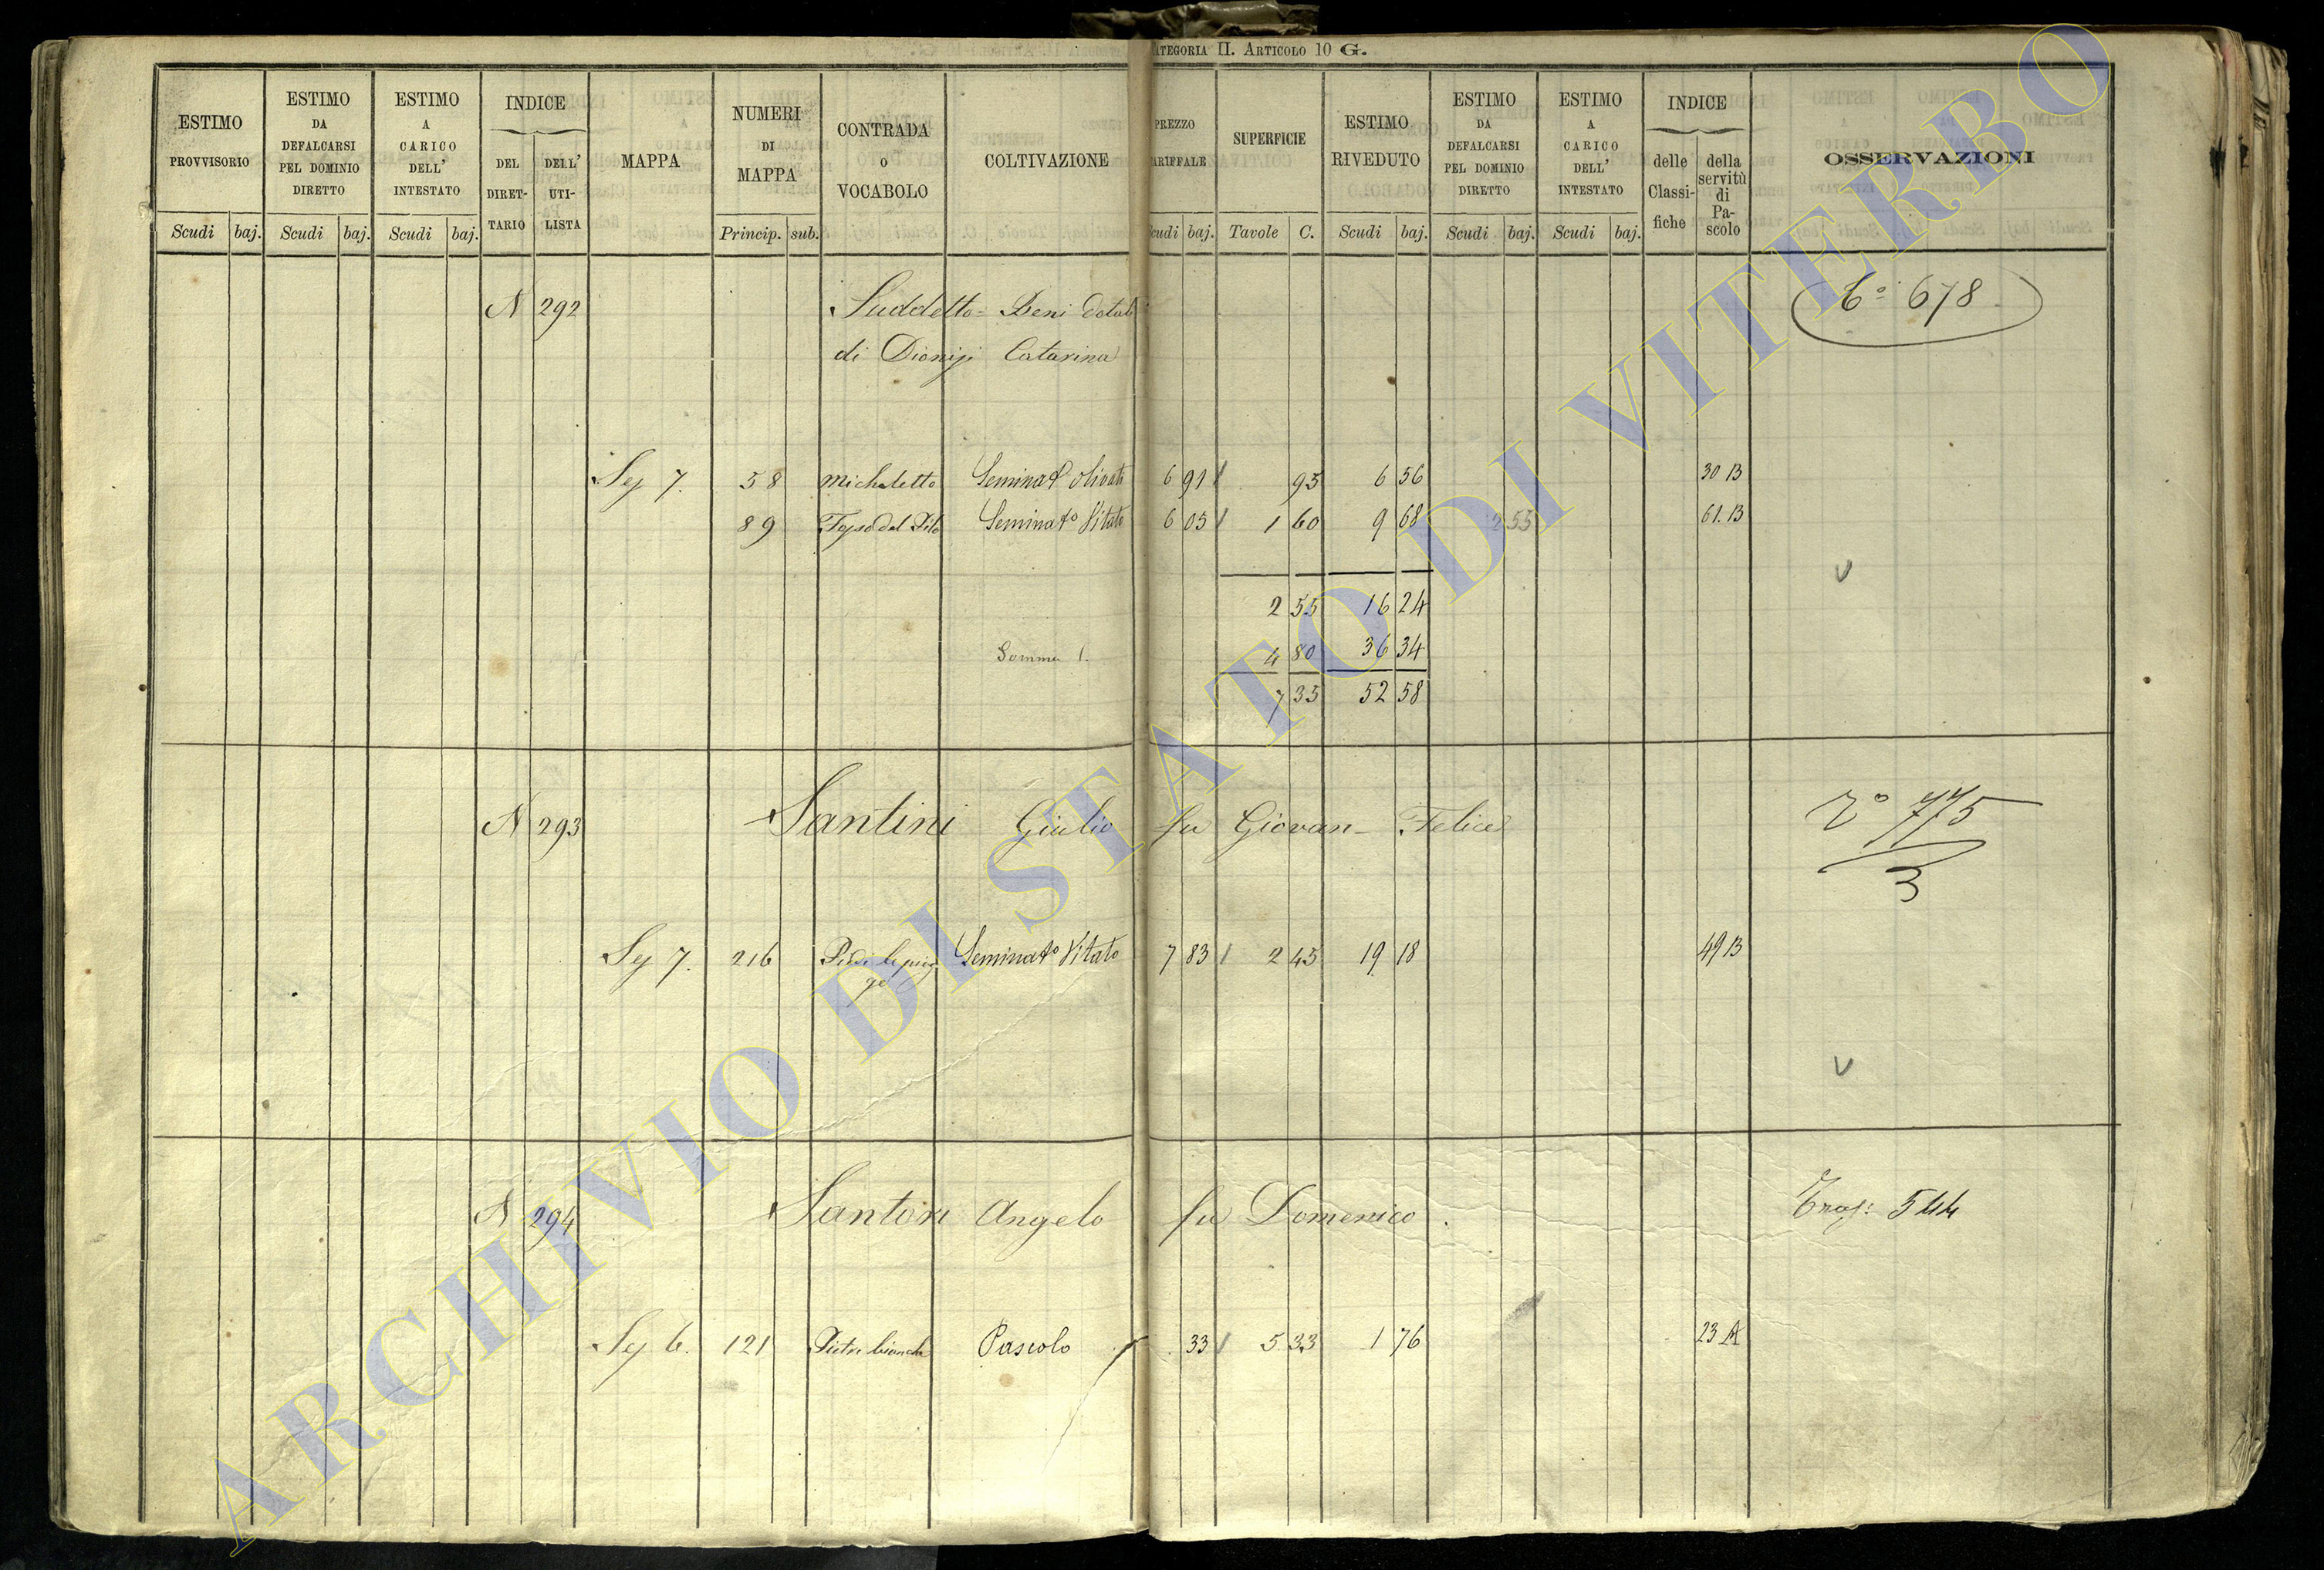 CATEGORIA II. ARTICOLO 10 G.
ESTIMO PROVVISORIO Scudi baj.
ESTIMO DA DEFALCARSI PEL DOMINIO DIRETTO Scudi baj.
ESTIMO A CARICO DELL' INTESTATO Scudi baj.
INDICE DEL DIRET-TARIO DELL' UTI-LISTA
MAPPA
NUMERI DI MAPPA Princip. sub.
CONTRADA O VOCABOLO
COLTIVAZIONE
PREZZO TARIFFALE Scudi baj.
SUPERFICIE Tavole C.
ESTIMO RIVEDUTO Scudi baj.
ESTIMO DA DEFALCARSI PEL DOMINIO DIRETTO Scudi baj.
ESTIMO A CARICO DELL' INTESTATO Scudi baj.
INDICE delle Classi-fiche della servitù di Pa-scolo
OSSERVAZIONI
N 292 Suddetto = Beni dotali 678
di Dionisi Catarina
Sez 7. 58 Micheletto Seminat° olivato 6 91 95 6 56 30 B
89 Seminat° Vitato 6 05 1 60 9 68 2 55 61. B
2 55 16 24
Somma 1. 4 80 36 34
7 35 52 58
N 293 Santini Giulio fu Giovan-Felice 775
3
Sez 7. 216 Seminat° Vitato 7 83 2 45 19 18 49 B
N 294 Santori Angelo fu Domenico. 544
Sez 6. 121 Pietre bianche Pascolo 33 5 33 1 76 23 A
ARCHIVIO DI STATO DI VITERBO